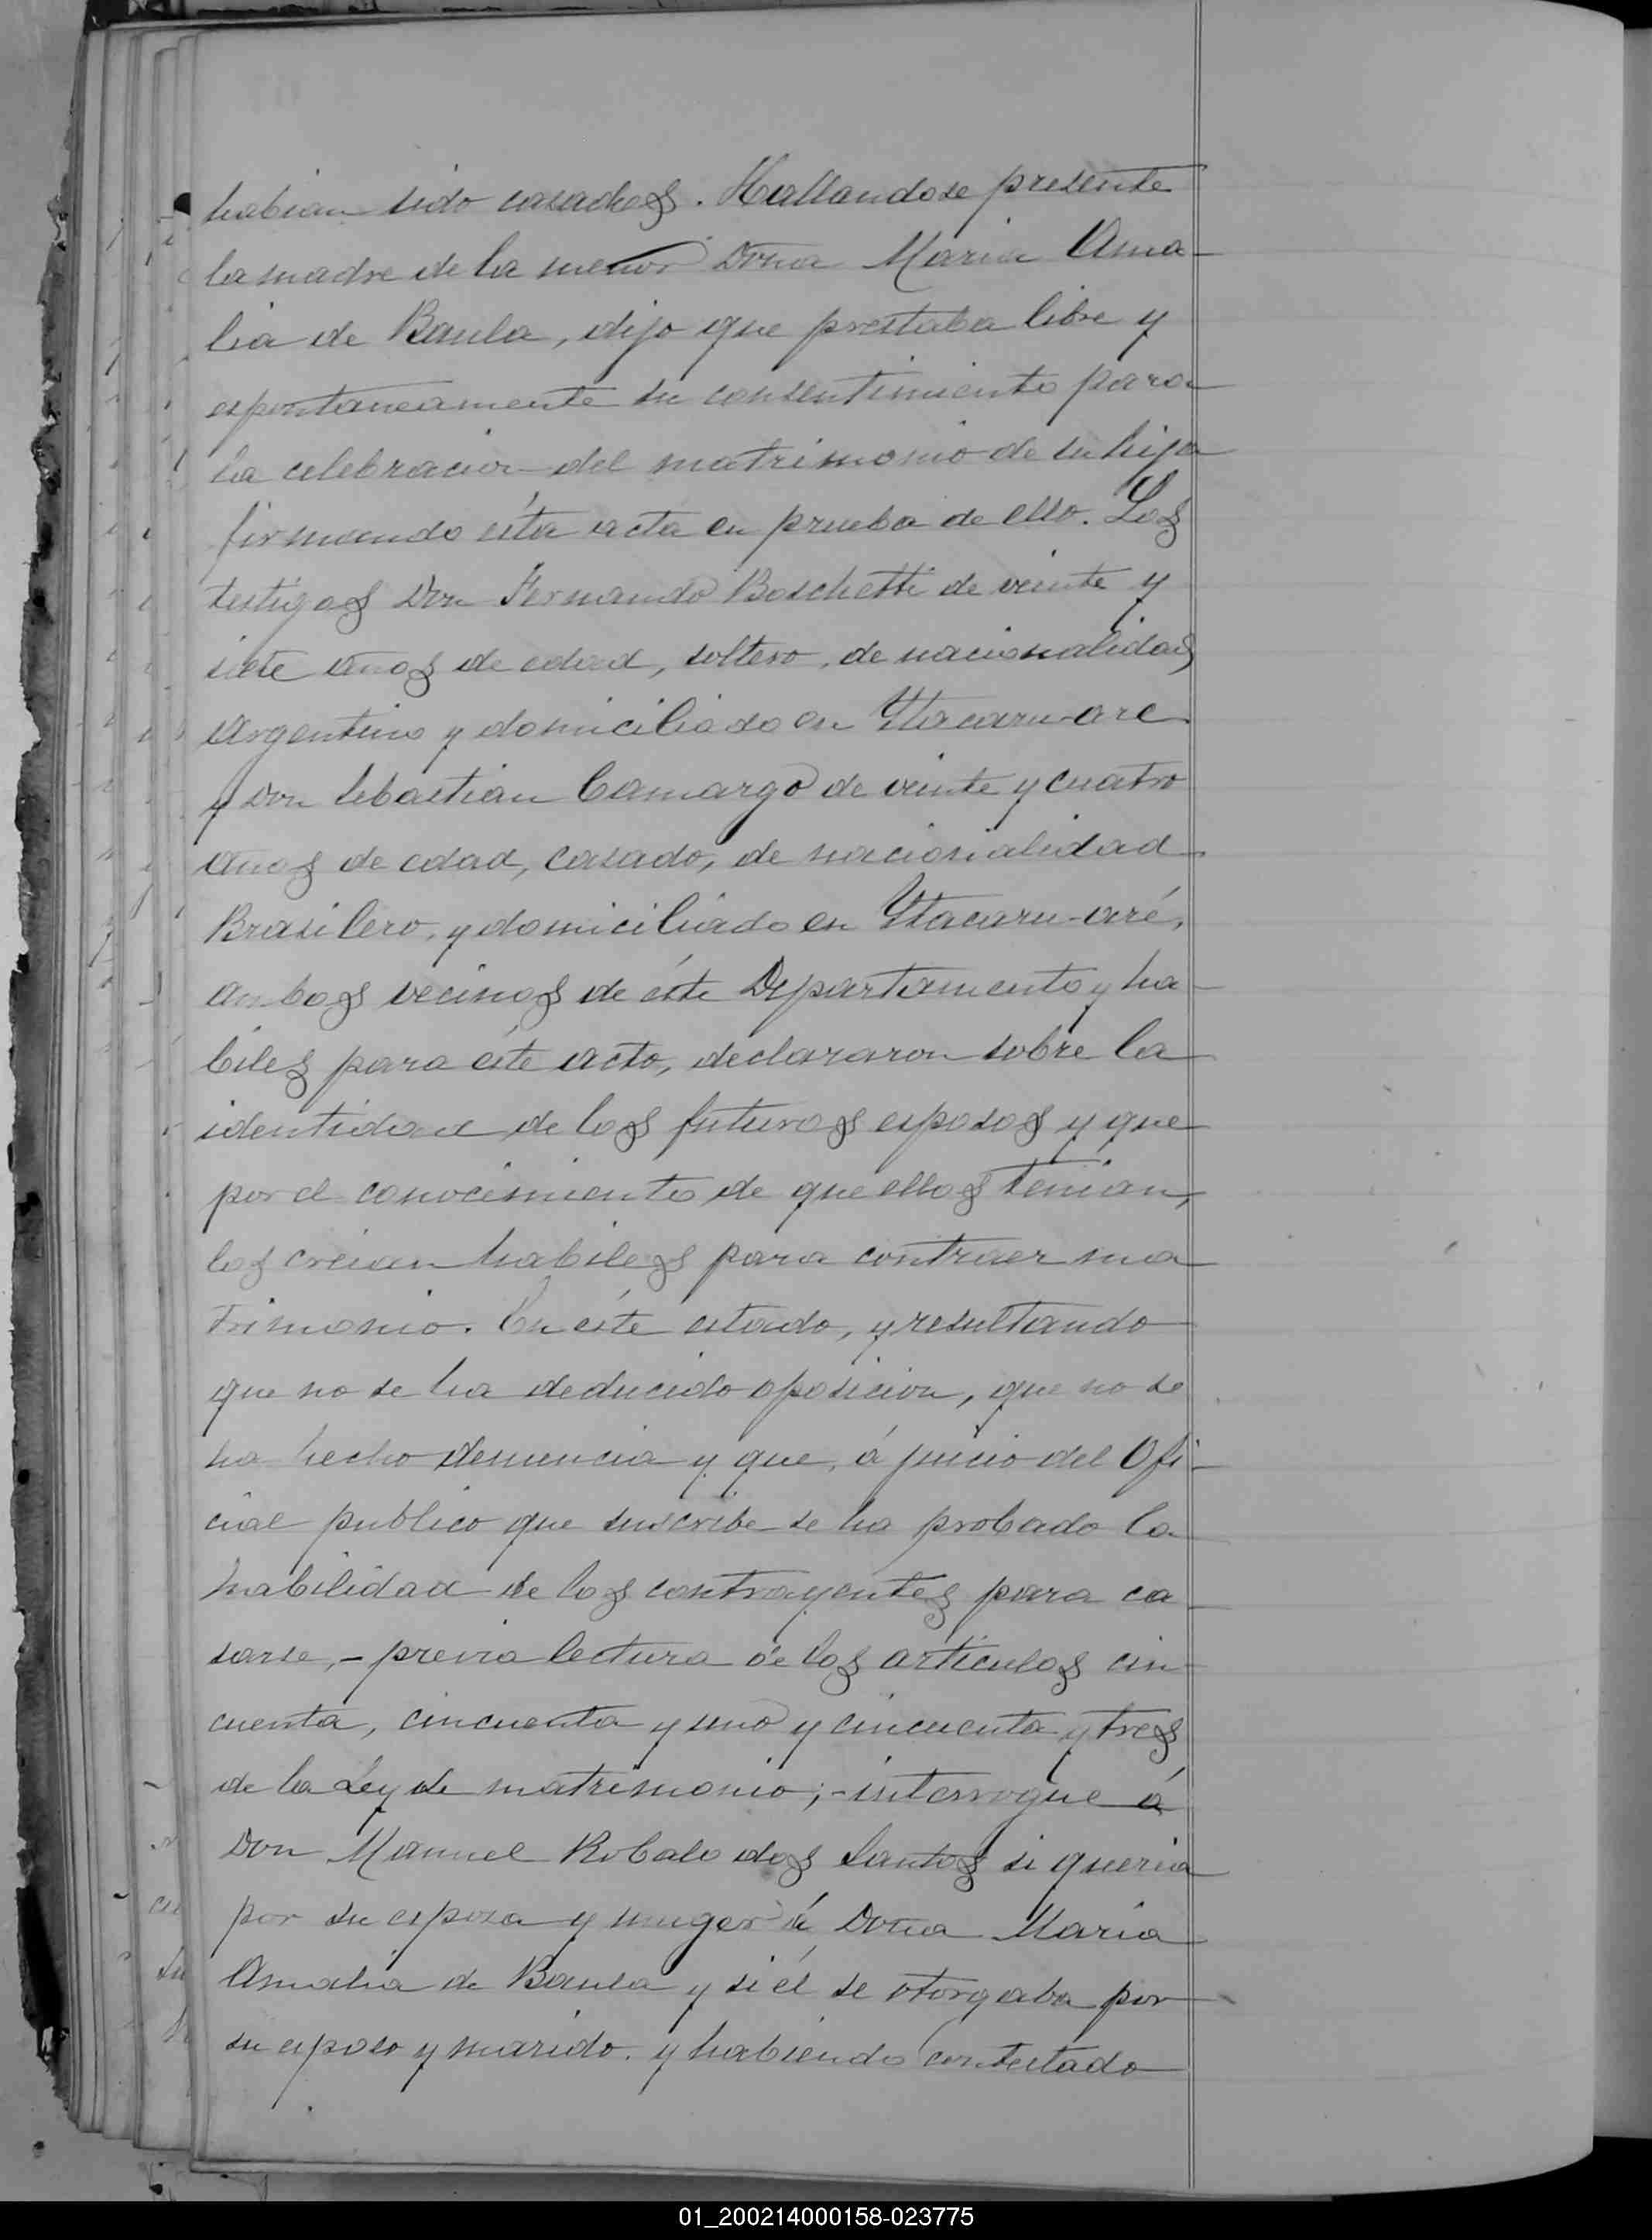 habian sido casados. Hallandose presente
la madre de la menor Doña Maria Ama-
lia de Baula, dijo que prestaba libre y
espontaneamente su consentimiento para
la celebracion del matrimonio de su hija
firmando ésta acta en prueba de ello. Los
testigos Don Fernando Boschetti de veinte y
siete años de edad, soltero, de nacionalidad
Argentino y domiciliado en Ytacaru-are
y Don Sebastian Camargo de veinte y cuatro
años de edad, casado, de nacionalidad
Brasilero, y domiciliado en Ytacaru-aré,
ambos vecinos de éste Departamento y ha-
biles para éste acto, declararon sobre la
identidad de los futuros esposos y que
por el conocimiento de que ellos tenian,
los creian habiles para contraer ma
trimonio. En éste estado, y resultando
que no se ha deducido oposicion, que no se
ha hecho denuncia y que, á juicio del Ofi-
cial publico que suscribe se ha probado la
habilidad de los contrayentes para ca
sarse, - previa lectura de los articulos cin
cuenta, cincuenta y uno y cincuenta y tres
de la Ley de matrimonio; - interrogue á
Don Manuel Robalo dos Santos si queria
por su esposa y muger á Doña Maria
Amalia de Baula y si él se otorgaba por
su esposo y marido. y habiendo contestado
01_200214000158-023775